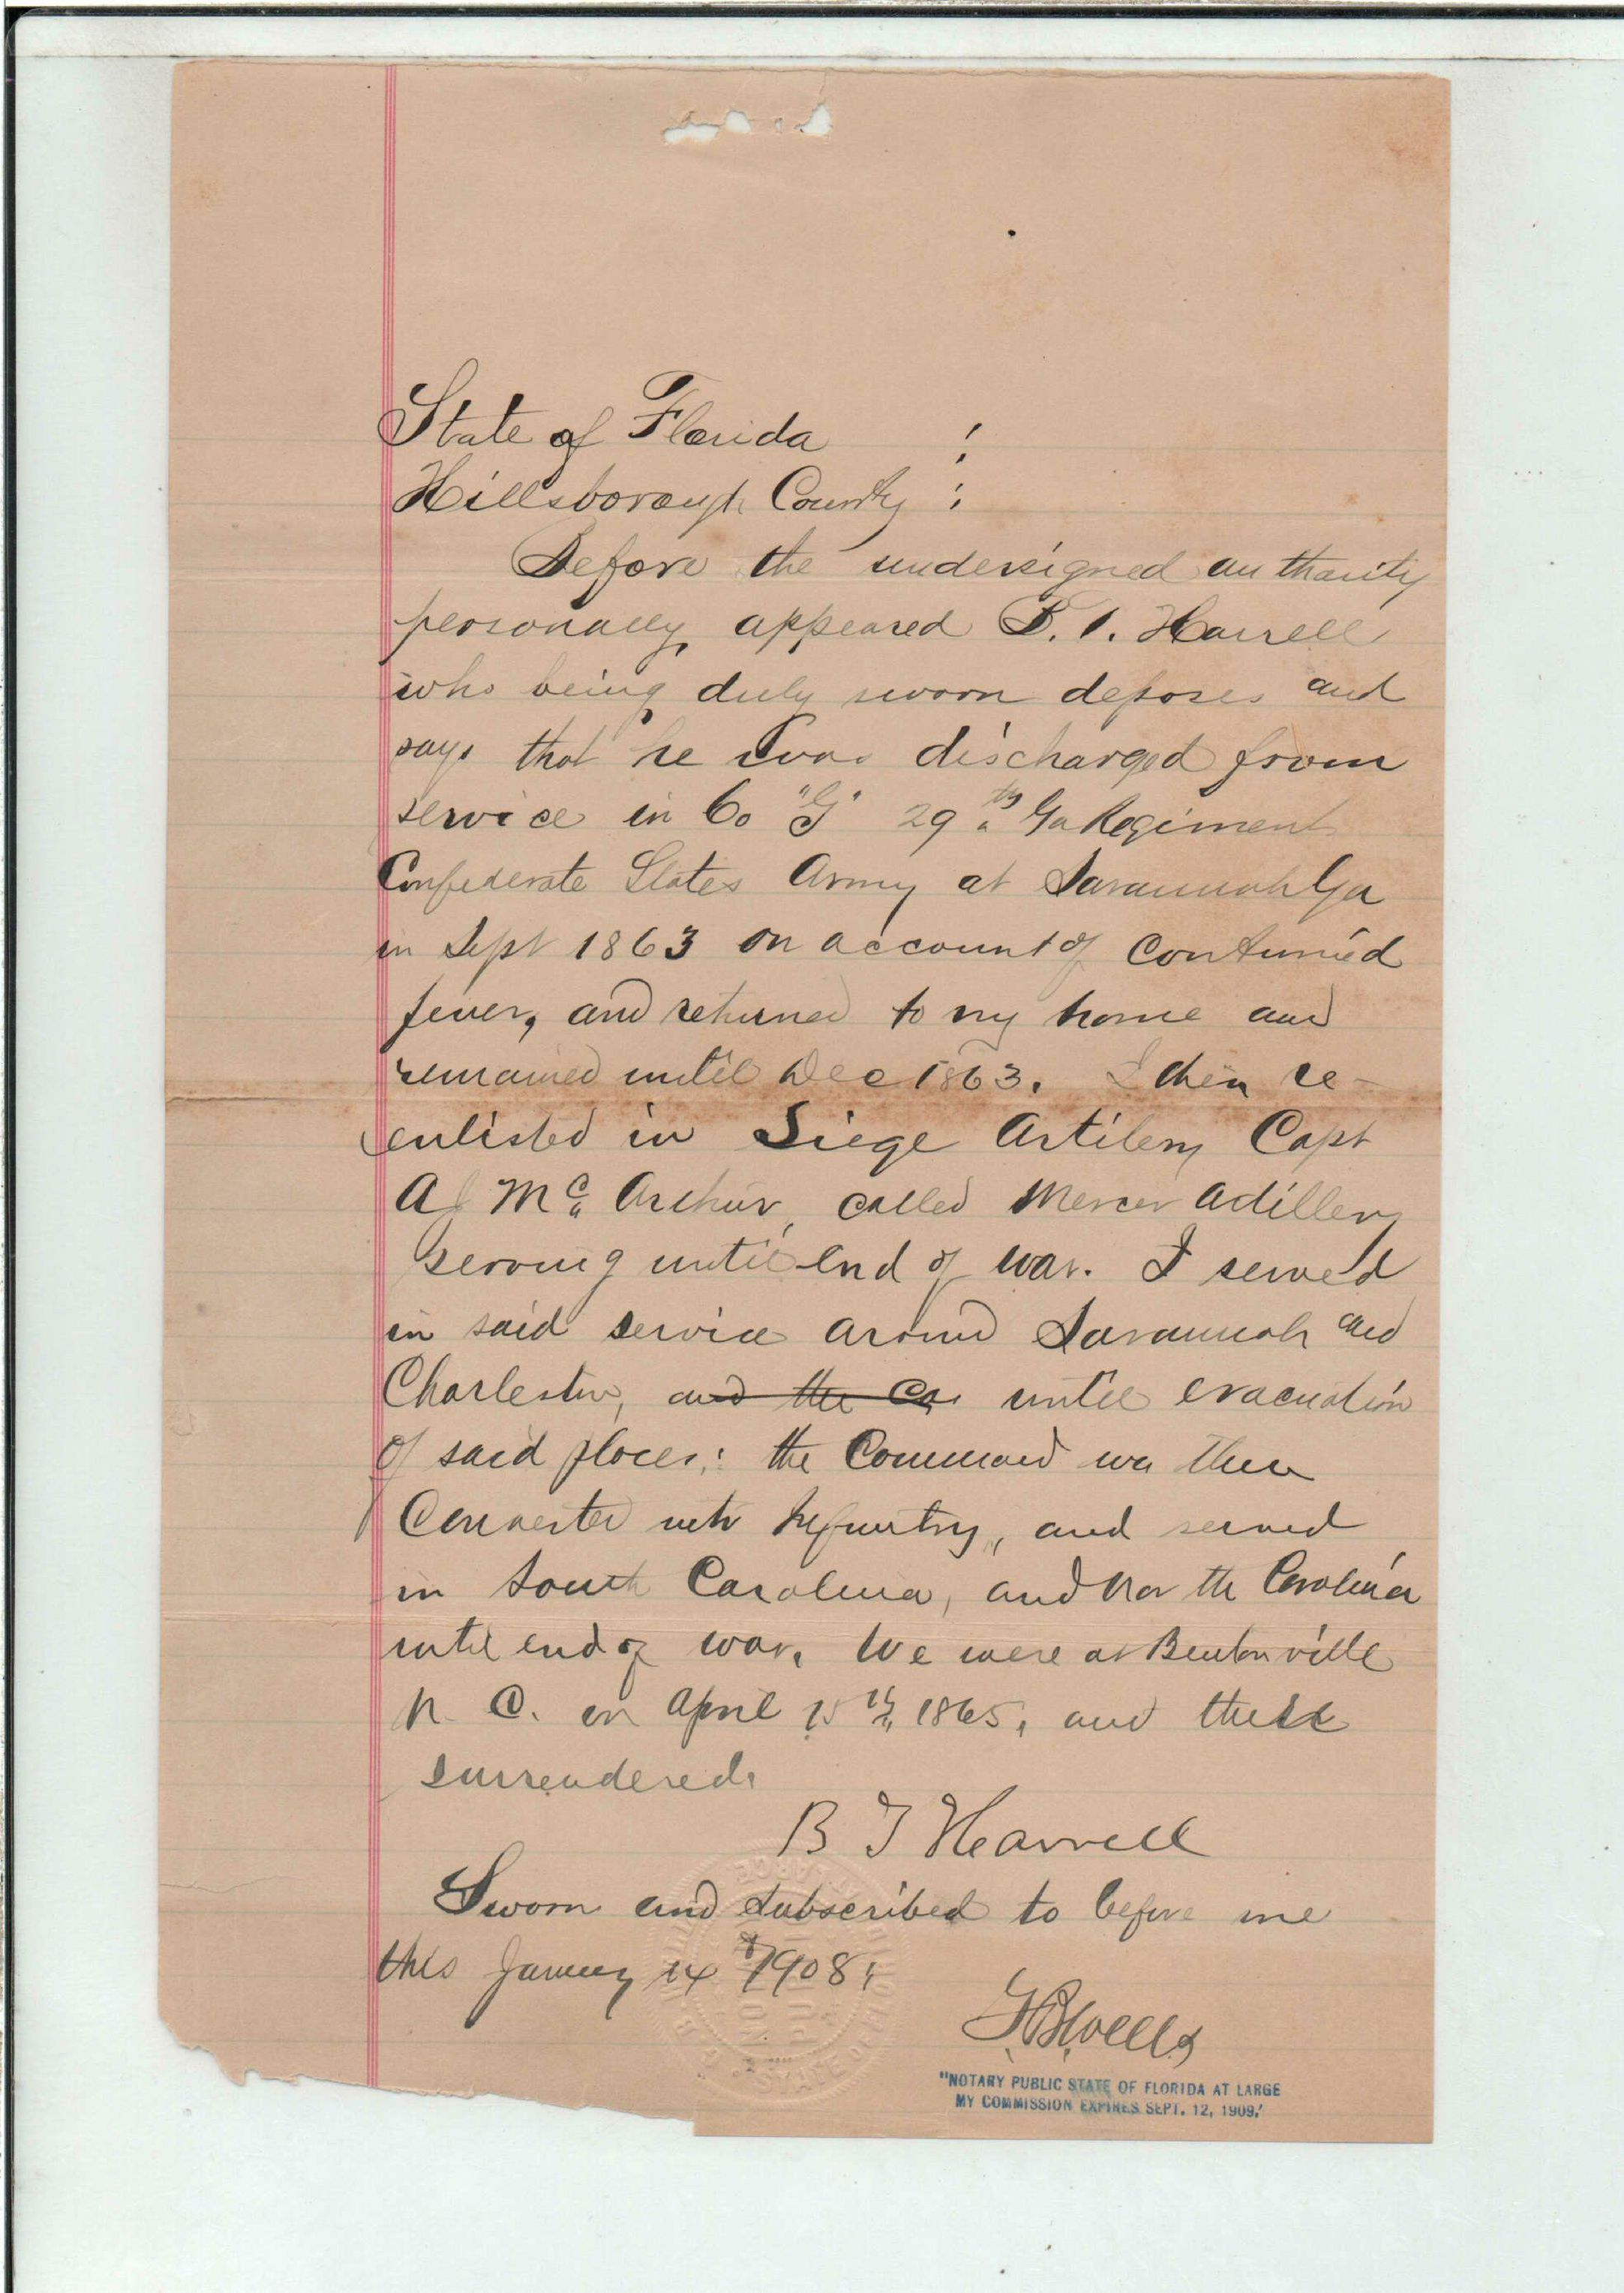 State of Florida :
Hillsborough County :
Before the undersigned authority
personally appeared B. T. Harrell
who being duly sworn deposes and
says that he was discharged from
service in Co "G" 29th Ga Regiment
Confederate States Army at Savannah Ga
in Sept 1863 on account of Continued
fever, and returned to my home and
remained until Dec 1863. I then re-
enlisted in Siege Artilery Capt
A J Mc Arthur, called Mercer Artillery
serving until end of war. I served
in said service around Savannah and
Charleston, and the Co until evacuation
of said places: the Command was then
Converted into Infantry, and served
in South Carolina, and North Carolina
until end of war. We were at Bentonville
N. C. on April 15th, 1865, and there
surrendered.
B T Harrell
Sworn and subscribed to before me
this January 14 1908.
Wells
"NOTARY PUBLIC STATE OF FLORIDA AT LARGE
MY COMMISSION EXPIRES SEPT. 12, 1909."